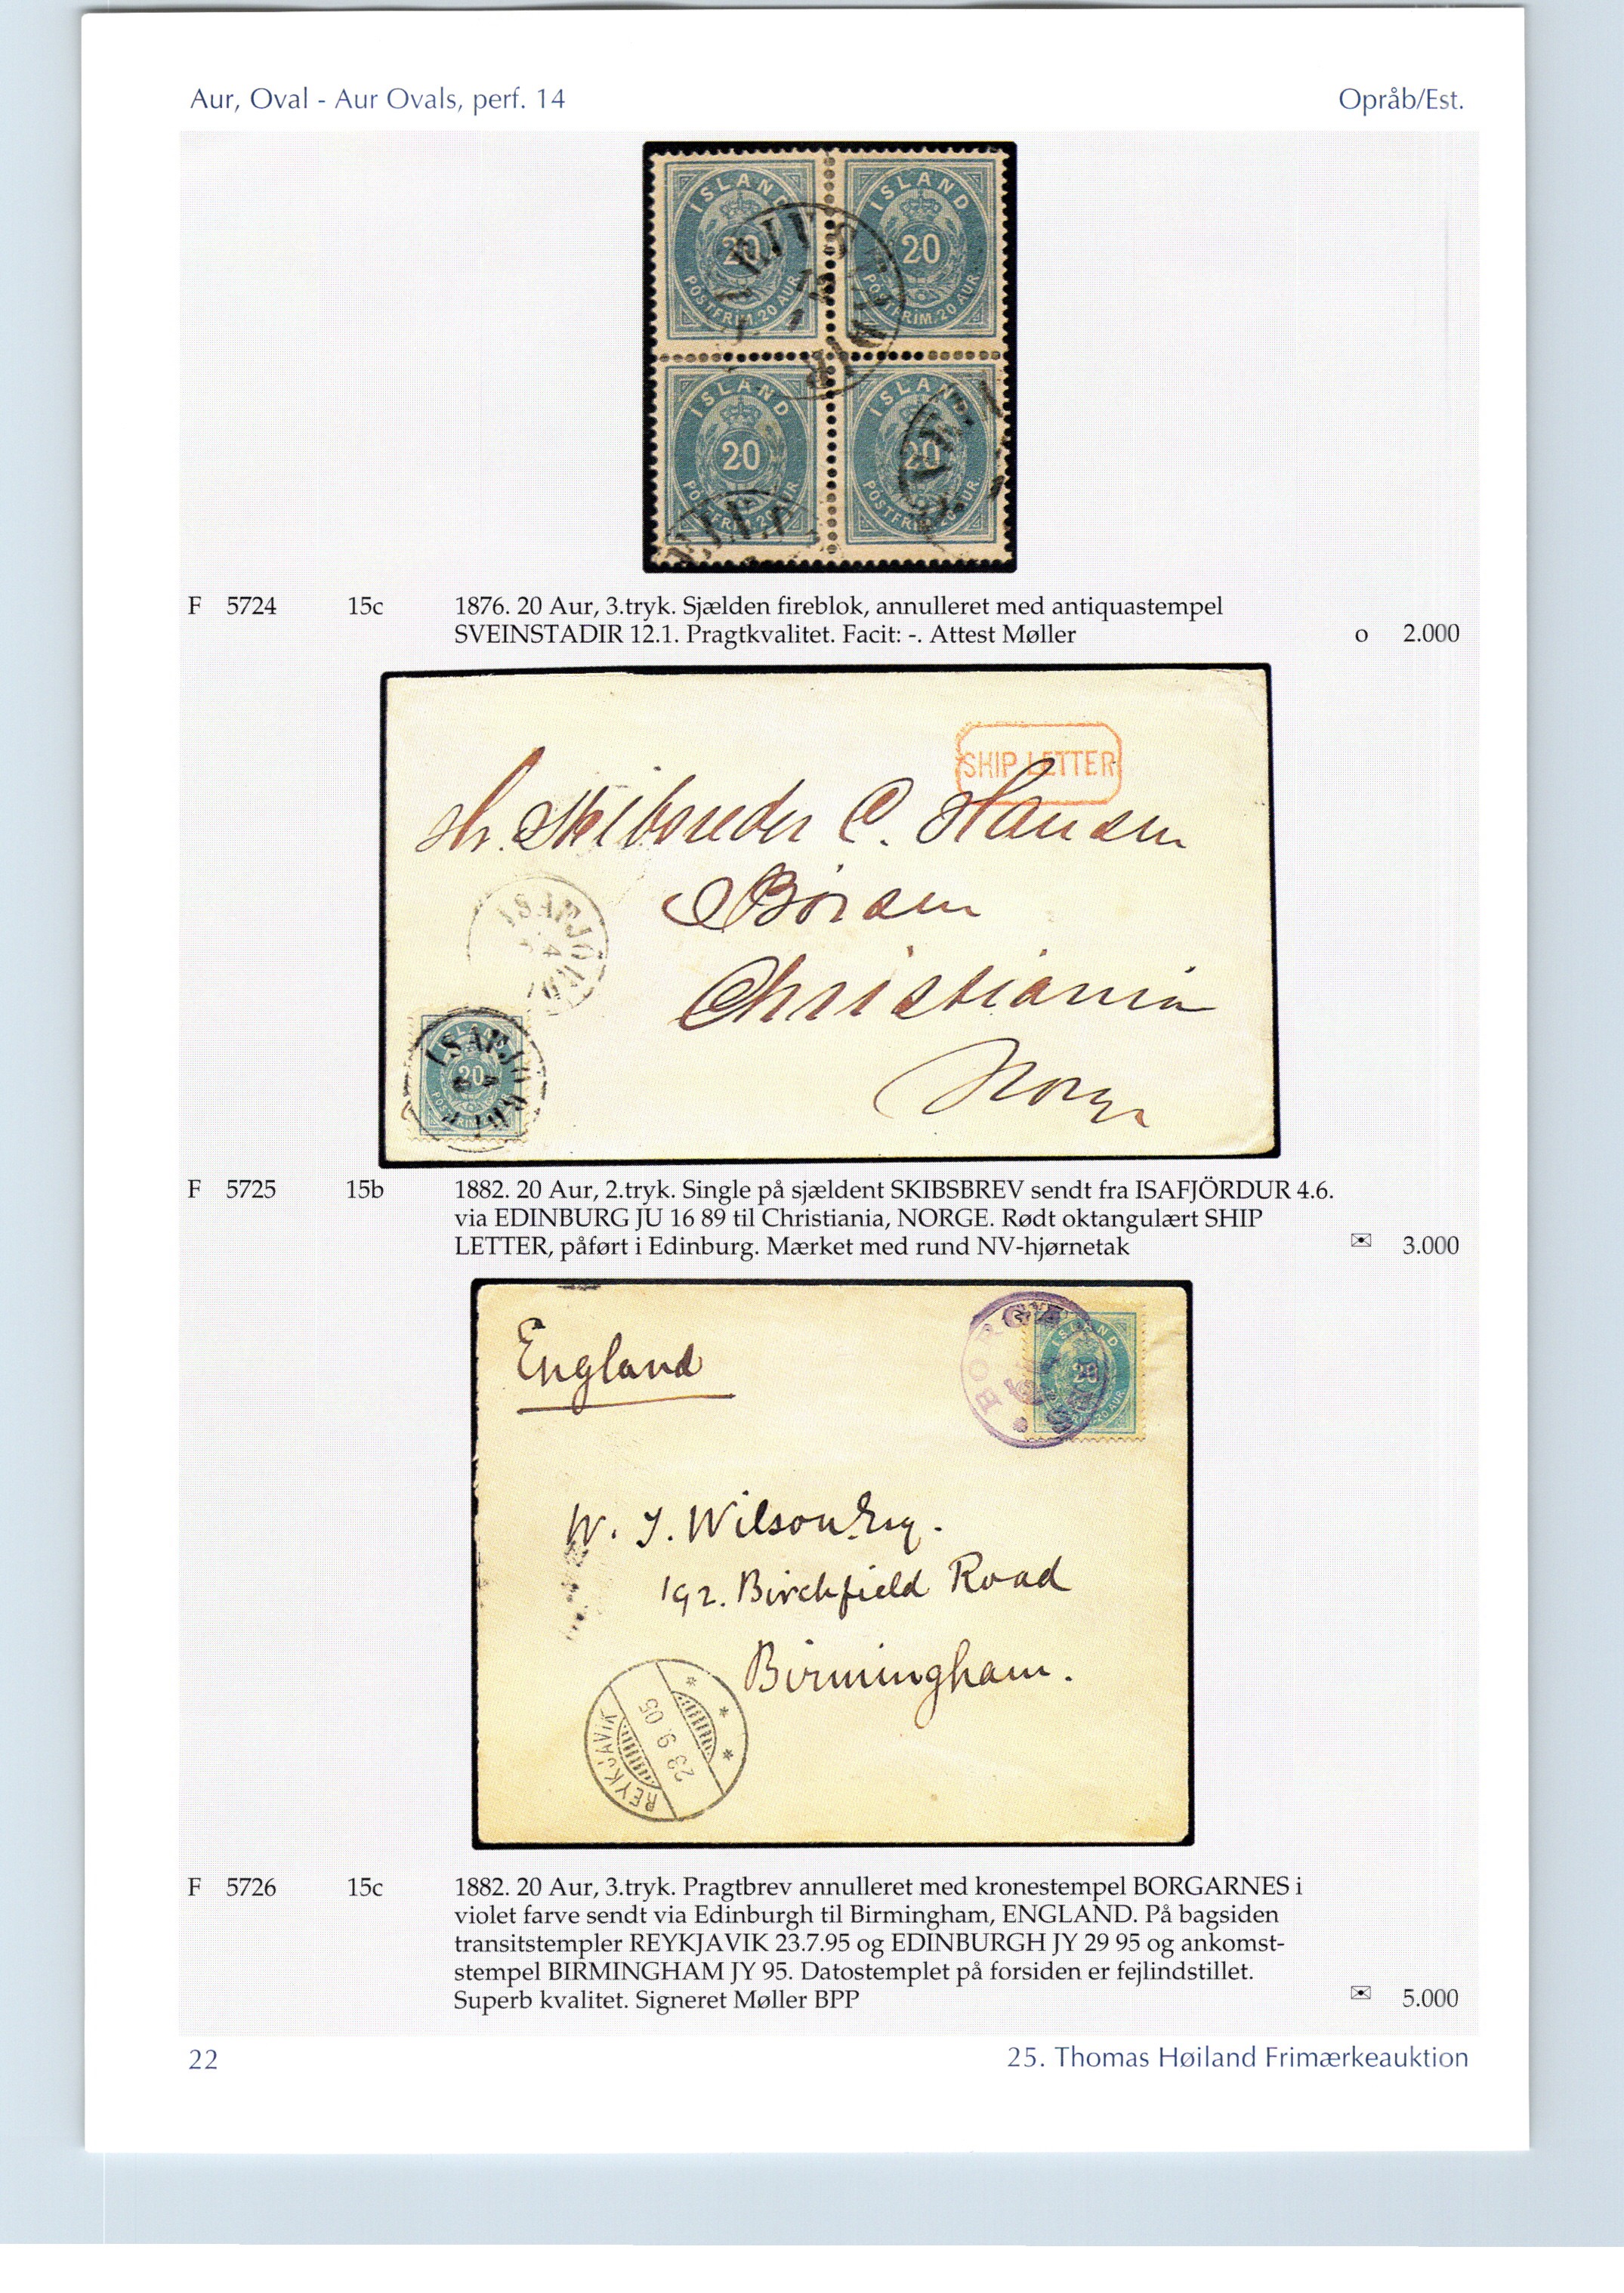 Aur, Oval - Aur Ovals, perf. 14
Opråb/Est.
ISLAND
20
POSTFRIM. 20 AUR.
ISLAND
20
POSTFRIM. 20 AUR.
ISLAND
20
POSTFRIM. 20 AUR.
ISLAND
20
POSTFRIM. 20 AUR.
F 5724 15c 1876. 20 Aur, 3.tryk. Sjælden fireblok, annulleret med antiquastempel
SVEINSTADIR 12.1. Pragtkvalitet. Facit: -. Attest Møller o 2.000
SHIP LETTER
Hr. Skibsreder C. Hansen
Börsen
Christiania
Norge
ISAFJÖRD
ISLAND
20
ISAFJÖRDUR
F 5725 15b 1882. 20 Aur, 2.tryk. Single på sjældent SKIBSBREV sendt fra ISAFJÖRDUR 4.6.
via EDINBURG JU 16 89 til Christiania, NORGE. Rødt oktangulært SHIP
LETTER, påført i Edinburg. Mærket med rund NV-hjørnetak ✉ 3.000
England
BORGARNES
ISLAND
20
20 AUR.
W. J. Wilson Esq.
192. Birchfield Road
Birmingham.
REYKJAVIK
23 9 05
F 5726 15c 1882. 20 Aur, 3.tryk. Pragtbrev annulleret med kronestempel BORGARNES i
violet farve sendt via Edinburgh til Birmingham, ENGLAND. På bagsiden
transitstempler REYKJAVIK 23.7.95 og EDINBURGH JY 29 95 og ankomst-
stempel BIRMINGHAM JY 95. Datostemplet på forsiden er fejlindstillet.
Superb kvalitet. Signeret Møller BPP ✉ 5.000
22
25. Thomas Høiland Frimærkeauktion